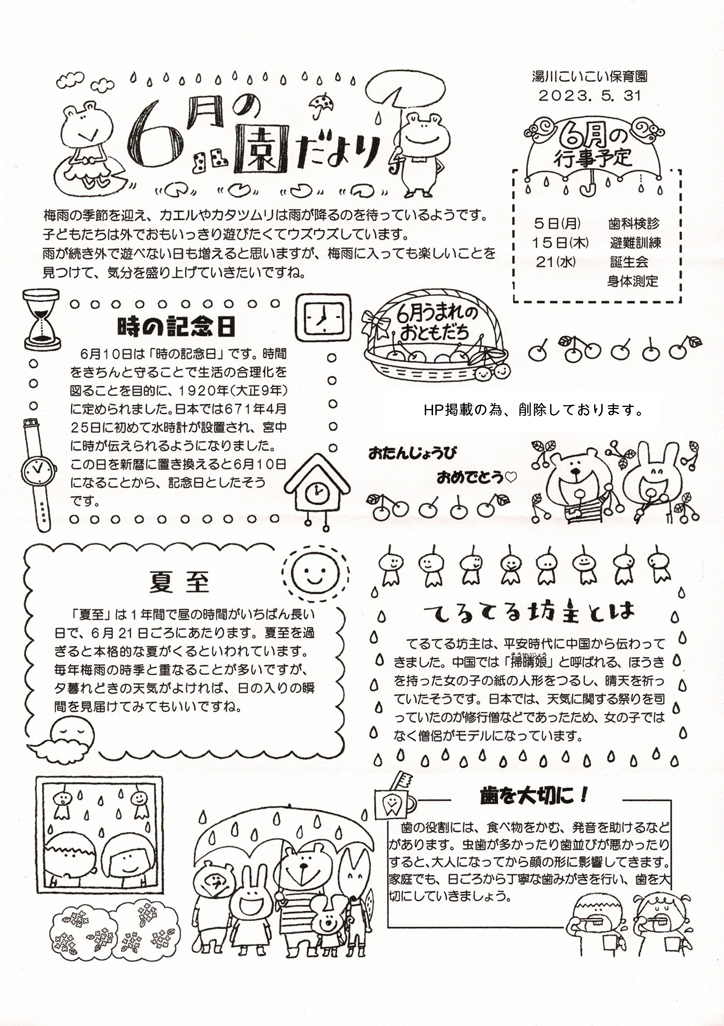 湯川こいこい保育園
2023. 5. 31
6月の
園だより
6月の
行事予定
5日(月) 歯科検診
15日(木) 避難訓練
21(水) 誕生会
身体測定
梅雨の季節を迎え、カエルやカタツムリは雨が降るのを待っているようです。
子どもたちは外でおもいっきり遊びたくてウズウズしています。
雨が続き外で遊べない日も増えると思いますが、梅雨に入っても楽しいことを
見つけて、気分を盛り上げていきたいですね。
時の記念日
6月10日は「時の記念日」です。時間
をきちんと守ることで生活の合理化を
図ることを目的に、1920年(大正9年)
に定められました。日本では671年4月
25日に初めて水時計が設置され、宮中
に時が伝えられるようになりました。
この日を新暦に置き換えると6月10日
になることから、記念日としたそう
です。
6月うまれの
おともだち
HP掲載の為、削除しております。
おたんじょうび
おめでとう♡
夏至
「夏至」は1年間で昼の時間がいちばん長い
日で、6月21日ごろにあたります。夏至を過
ぎると本格的な夏がくるといわれています。
毎年梅雨の時季と重なることが多いですが、
夕暮れどきの天気がよければ、日の入りの瞬
間を見届けてみてもいいですね。
てるてる坊主とは
てるてる坊主は、平安時代に中国から伝わって
きました。中国では「掃晴娘」と呼ばれる、ほうき
を持った女の子の紙の人形をつるし、晴天を祈っ
ていたそうです。日本では、天気に関する祭りを司
っていたのが修行僧などであったため、女の子では
なく僧侶がモデルになっています。
歯を大切に!
歯の役割には、食べ物をかむ、発音を助けるなど
があります。虫歯が多かったり歯並びが悪かったり
すると、大人になってから顔の形に影響してきます。
家庭でも、日ごろから丁寧な歯みがきを行い、歯を大
切にしていきましょう。